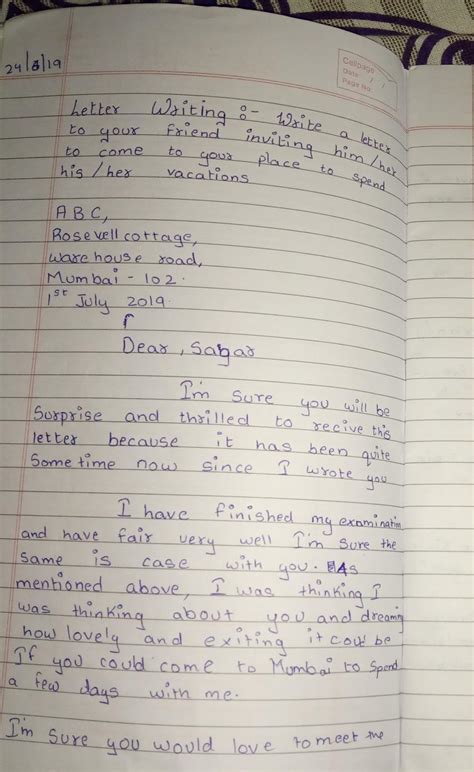 24/8/19
Callpage
Date / /
Page No.
Letter Writing :- Write a letter
to your friend inviting him/her
to come to your place to spend
his/her vacations
ABC,
Rosevell cottage,
ware house road,
Mumbai - 102.
1st July 2019.
Dear, Sagar
I'm sure you will be
Surprise and thrilled to recive this
letter because it has been quite
Some time now since I wrote you
I have finished my examination
and have fair very well I'm sure the
same is case with you. As
mentioned above, I was thinking I
was thinking about you and dreaming
how lovely and exiting it coul be
If you could come to Mumbai to spend
a few days with me.
I'm sure you would love to meet the